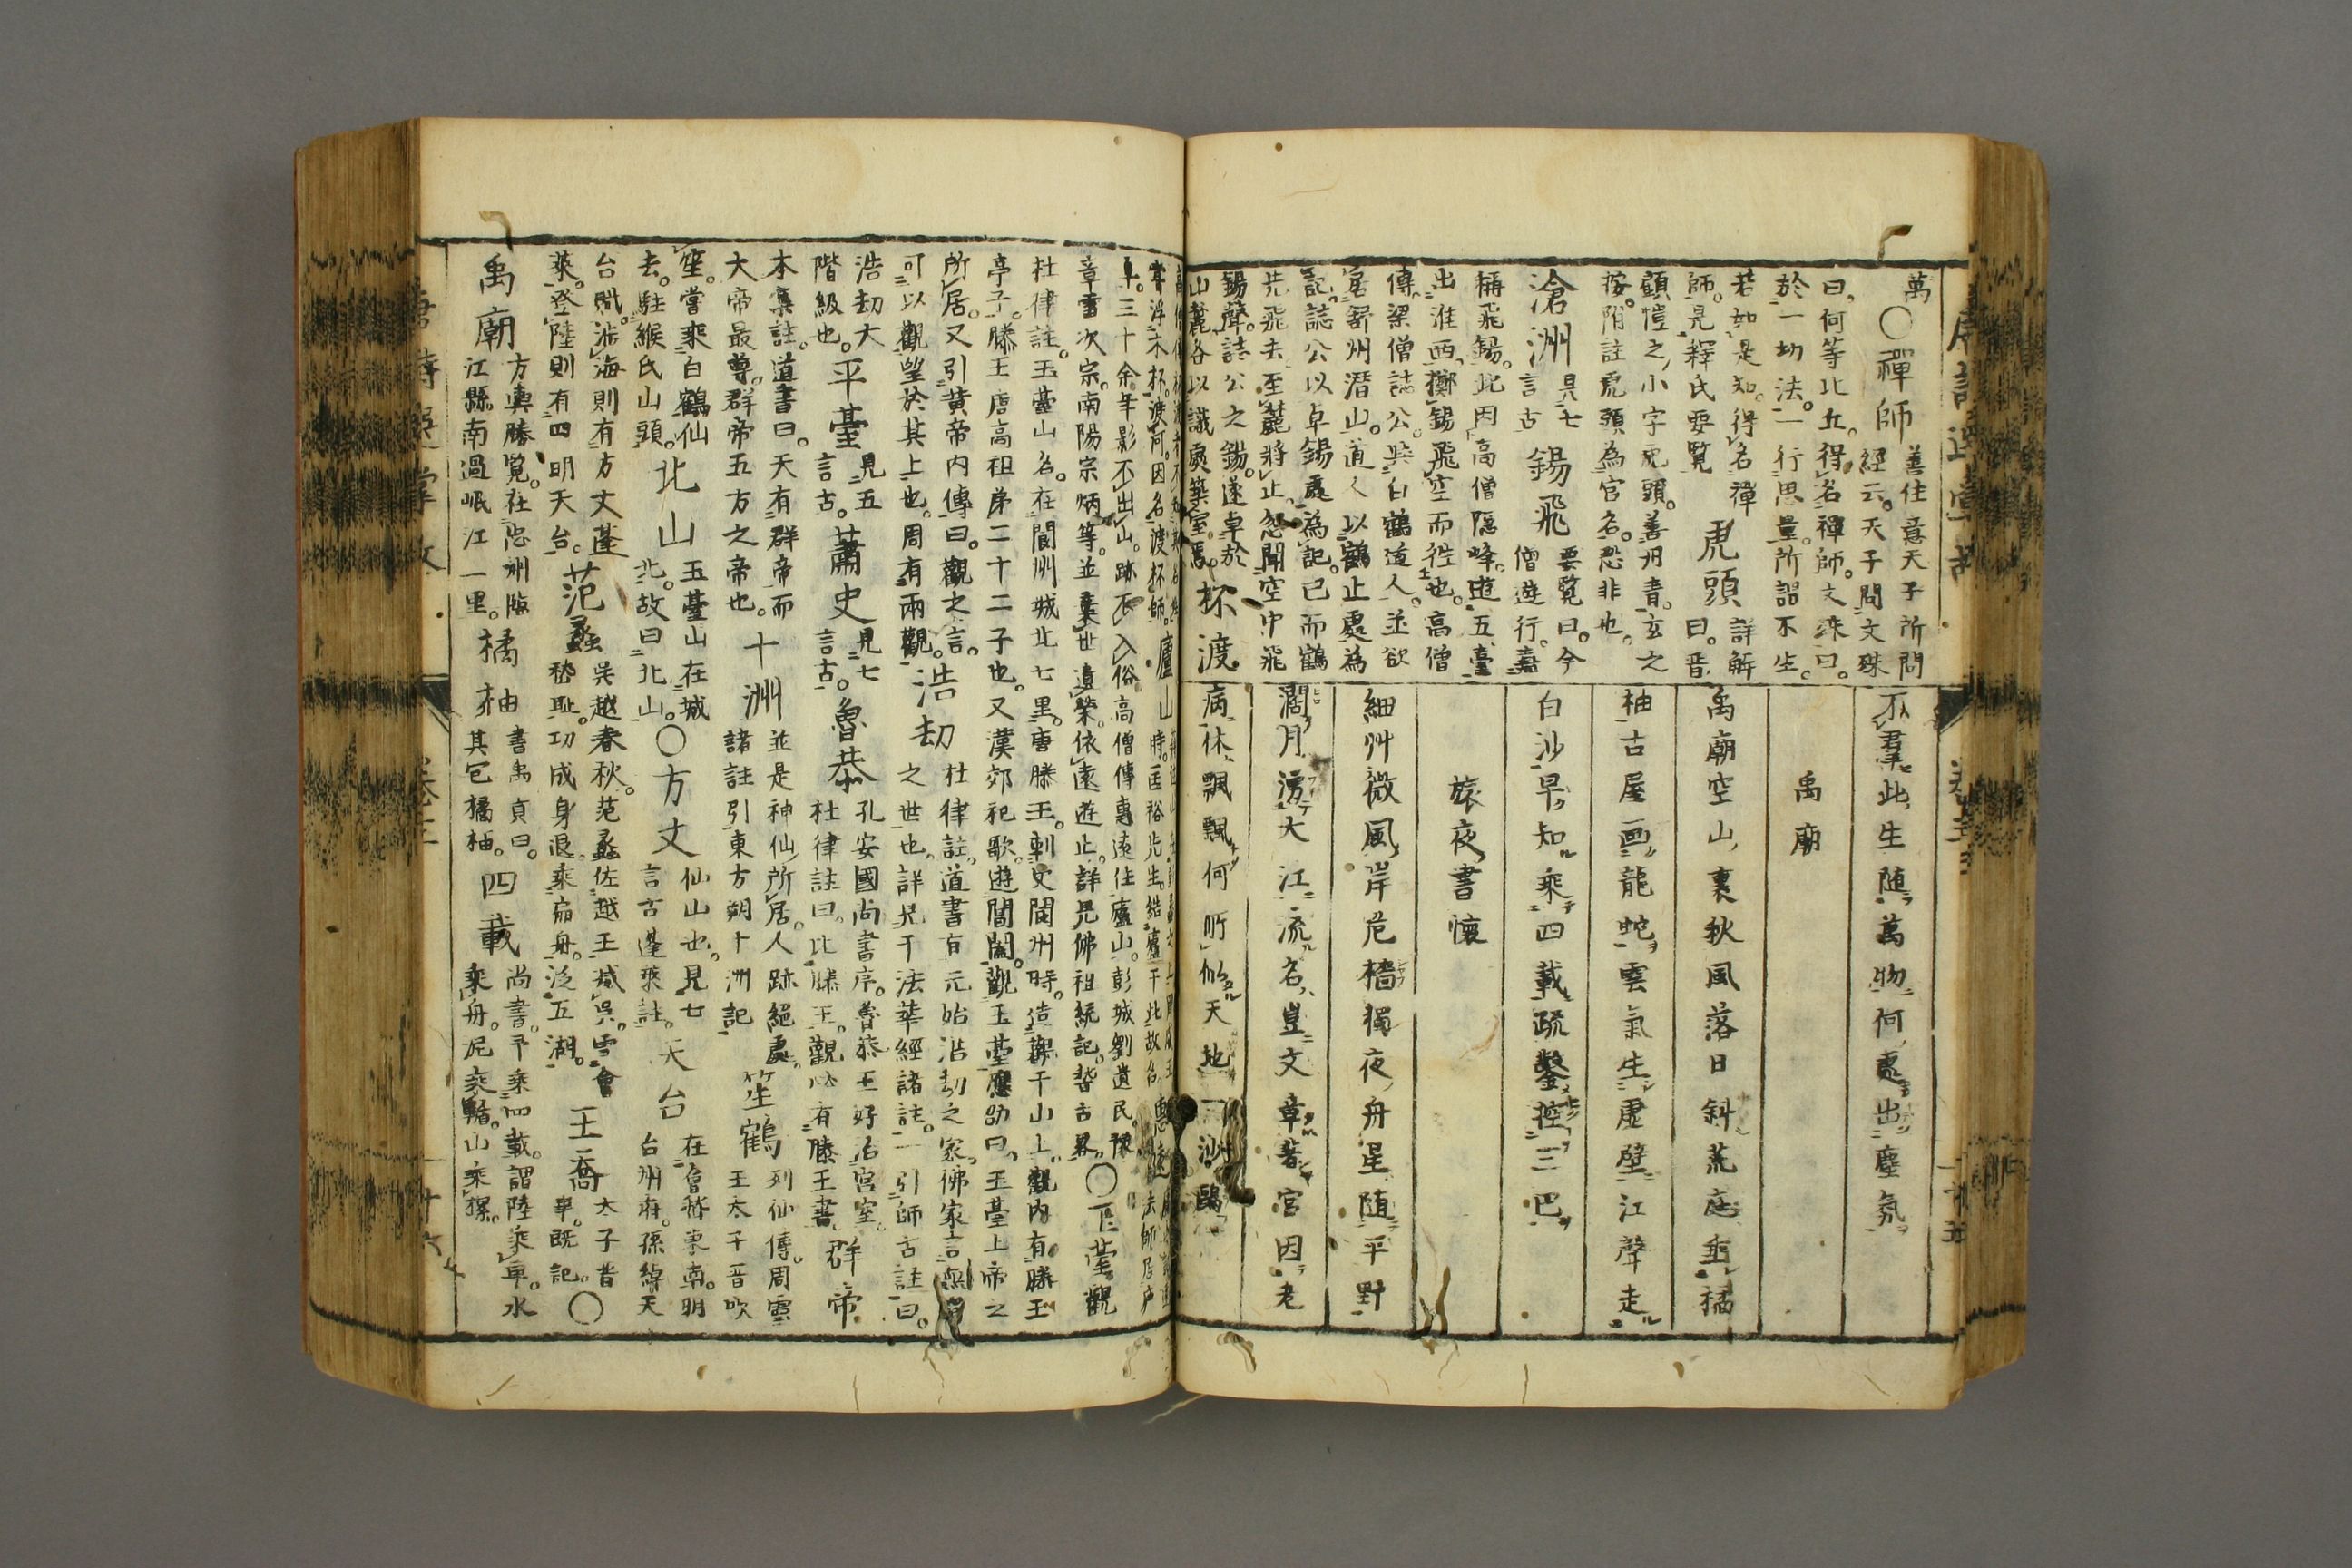 唐詩選掌故
萬
〇禪師
善住意天子所問
經云。天子問文殊
曰。何等比丘。得名禪師。文殊曰。
於一切法。一行思量。所謂不生。
若如是知。得名禪
師。是釋氏要覽
虎頭
詳解
曰。晋
顧愷之、小字虎頭。善丹青。玄之
按。附註虎頭為官名。恐非也。
滄洲
見七
言古
錫飛
要覽曰。今
僧遊行。嘉
稱飛錫。此因高僧隱峰。遊五臺
出淮西。擲錫飛空而徃也。高僧
傳。梁僧誌公。與白鶴道人。並欲
居舒州潛山。道人以鶴止處為
記。誌公以卓錫處為記。已而鶴
先飛去。至麓將止。忽聞空中飛
錫聲。誌公之錫。遂卓於
山麓。各以識處築室焉。
杯渡
不群此生随萬物何處出塵氛
禹廟
禹廟空山裏秋風落日斜荒庭垂橘
柚古屋画龍蛇雲氣生虚壁江聲走
白沙早知乘四載疏鑿控三巴
旅夜書懷
細艸微風岸危檣獨夜舟星随平野
濶月湧大江流名豈文章著官因老
病休飄飄何所似天地一沙鷗
甞浮木杯。渡河。因名渡杯師。
廬山
時。匡裕先生。結廬于此故名
卓。三十余年影不出山。跡不入俗高僧傳惠遠住廬山。彭城劉遺民。豫
章雷次宗。南陽宗炳等。並棄世遺榮。依遠遊止。詳見佛祖統記。誓古畧。
〇玉臺觀
杜律註。玉臺山名。在閬州城北七里。唐滕王。刺史閬州時。造觀于山上。觀内有滕王
亭子。滕王唐高祖第二十二子也。又漢郊祀歌。遊閶闔。觀玉臺應劭曰。玉臺上帝之
所居。又引黄帝内傳曰。觀之言。
可以觀望於其上也。周有兩觀。
浩劫
杜律註。道書有元始浩劫之家。佛家言無
之世也。詳見于法華經諸註。一引師古註曰。
浩劫大
階級也。
平臺
見五
言古。
蕭史
見七
言古。
魯恭
孔安國尚書序。魯恭王好治宮室。
杜律註曰。比滕王。觀必有滕王書。
群帝
本集註。道書曰。天有群帝而
大帝最尊。群帝五方之帝也。
十洲
並是神仙所居。人跡絕處。
諸註引東方朔十洲記
笙鶴
列仙傳。周靈
王太子晋吹
笙。嘗乘白鶴仙
去。駐緱氏山頭。
北山
玉臺山在城
北。故曰北山。
〇方丈
仙山也。見七
言古蓬萊註。
天台
在會稽東南。明
台州府。孫綽天
台賦。涉海則有方丈蓬
萊。登陸則有四明天台。
范蠡
吳越春秋。范蠡佐越王滅吳。雪會
稽恥。功成身退。乘扁舟。泛五湖。
王喬
太子晋
事。既記。
〇
禹廟
方輿勝覽。在忠州臨
江縣南過岷江一里。
橘柚
書禹貢曰。
其包橘柚。
四載
尚書。予乘四載。謂陸乘車。水
乘舟。泥乘輴。山乘樏。